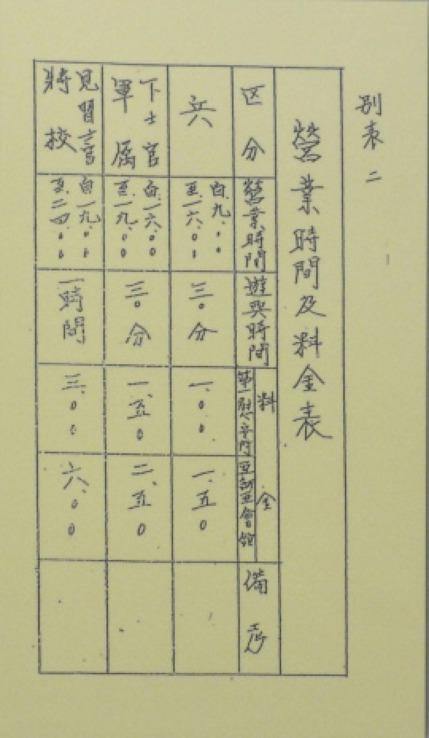 別表二
營業時間及料金表
区分
營業時間
遊興時間
料金
第一慰安所
亞細亞會館
備考
兵
自九.〇〇
至一六.〇〇
三〇分
一.〇〇
一.五〇
下士官
軍属
自一六.〇〇
至一九.〇〇
三〇分
一.五〇
二.五〇
見習士官
將校
自一九.〇〇
至二四.〇〇
一時間
三.〇〇
六.〇〇